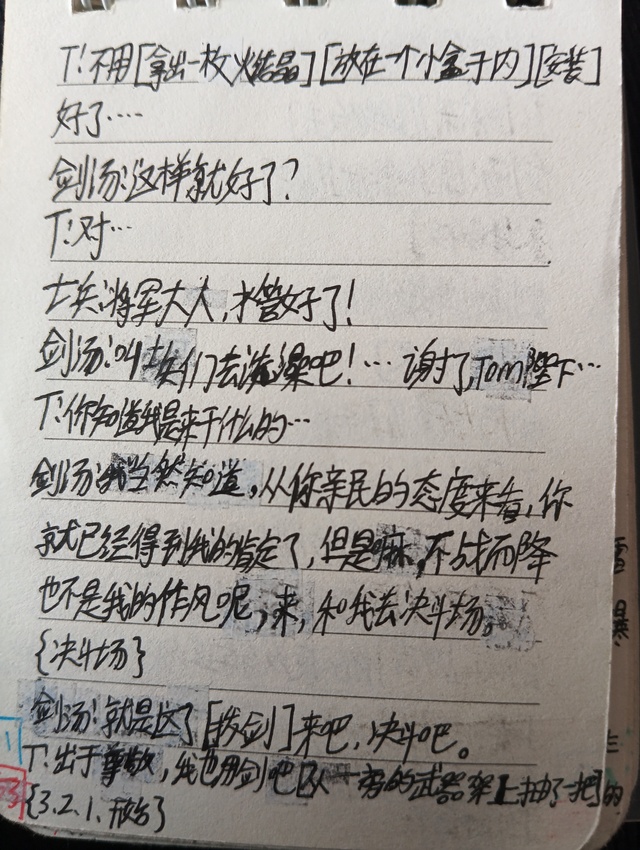 T:不用[拿出一枚火结晶][放在一个小盒子内][安装]
好了····
剑汤:这样就好了?
T:对…
士兵:将军大人,水管好了!
剑汤:叫士兵们去洗澡吧!… 谢了,Tom陛下…
T:你知道我是来干什么的…
剑汤:我当然知道,从你亲民的态度来看,你
就已经得到我的肯定了,但是嘛,不战而降
也不是我的作风呢,来,和我去决斗场。
{决斗场}
剑汤:就是这了[拨剑]来吧,决斗吧。
T:出于尊敬,我也用剑吧[从一旁的武器架上抽了一把]的
{3.2.1.开始}